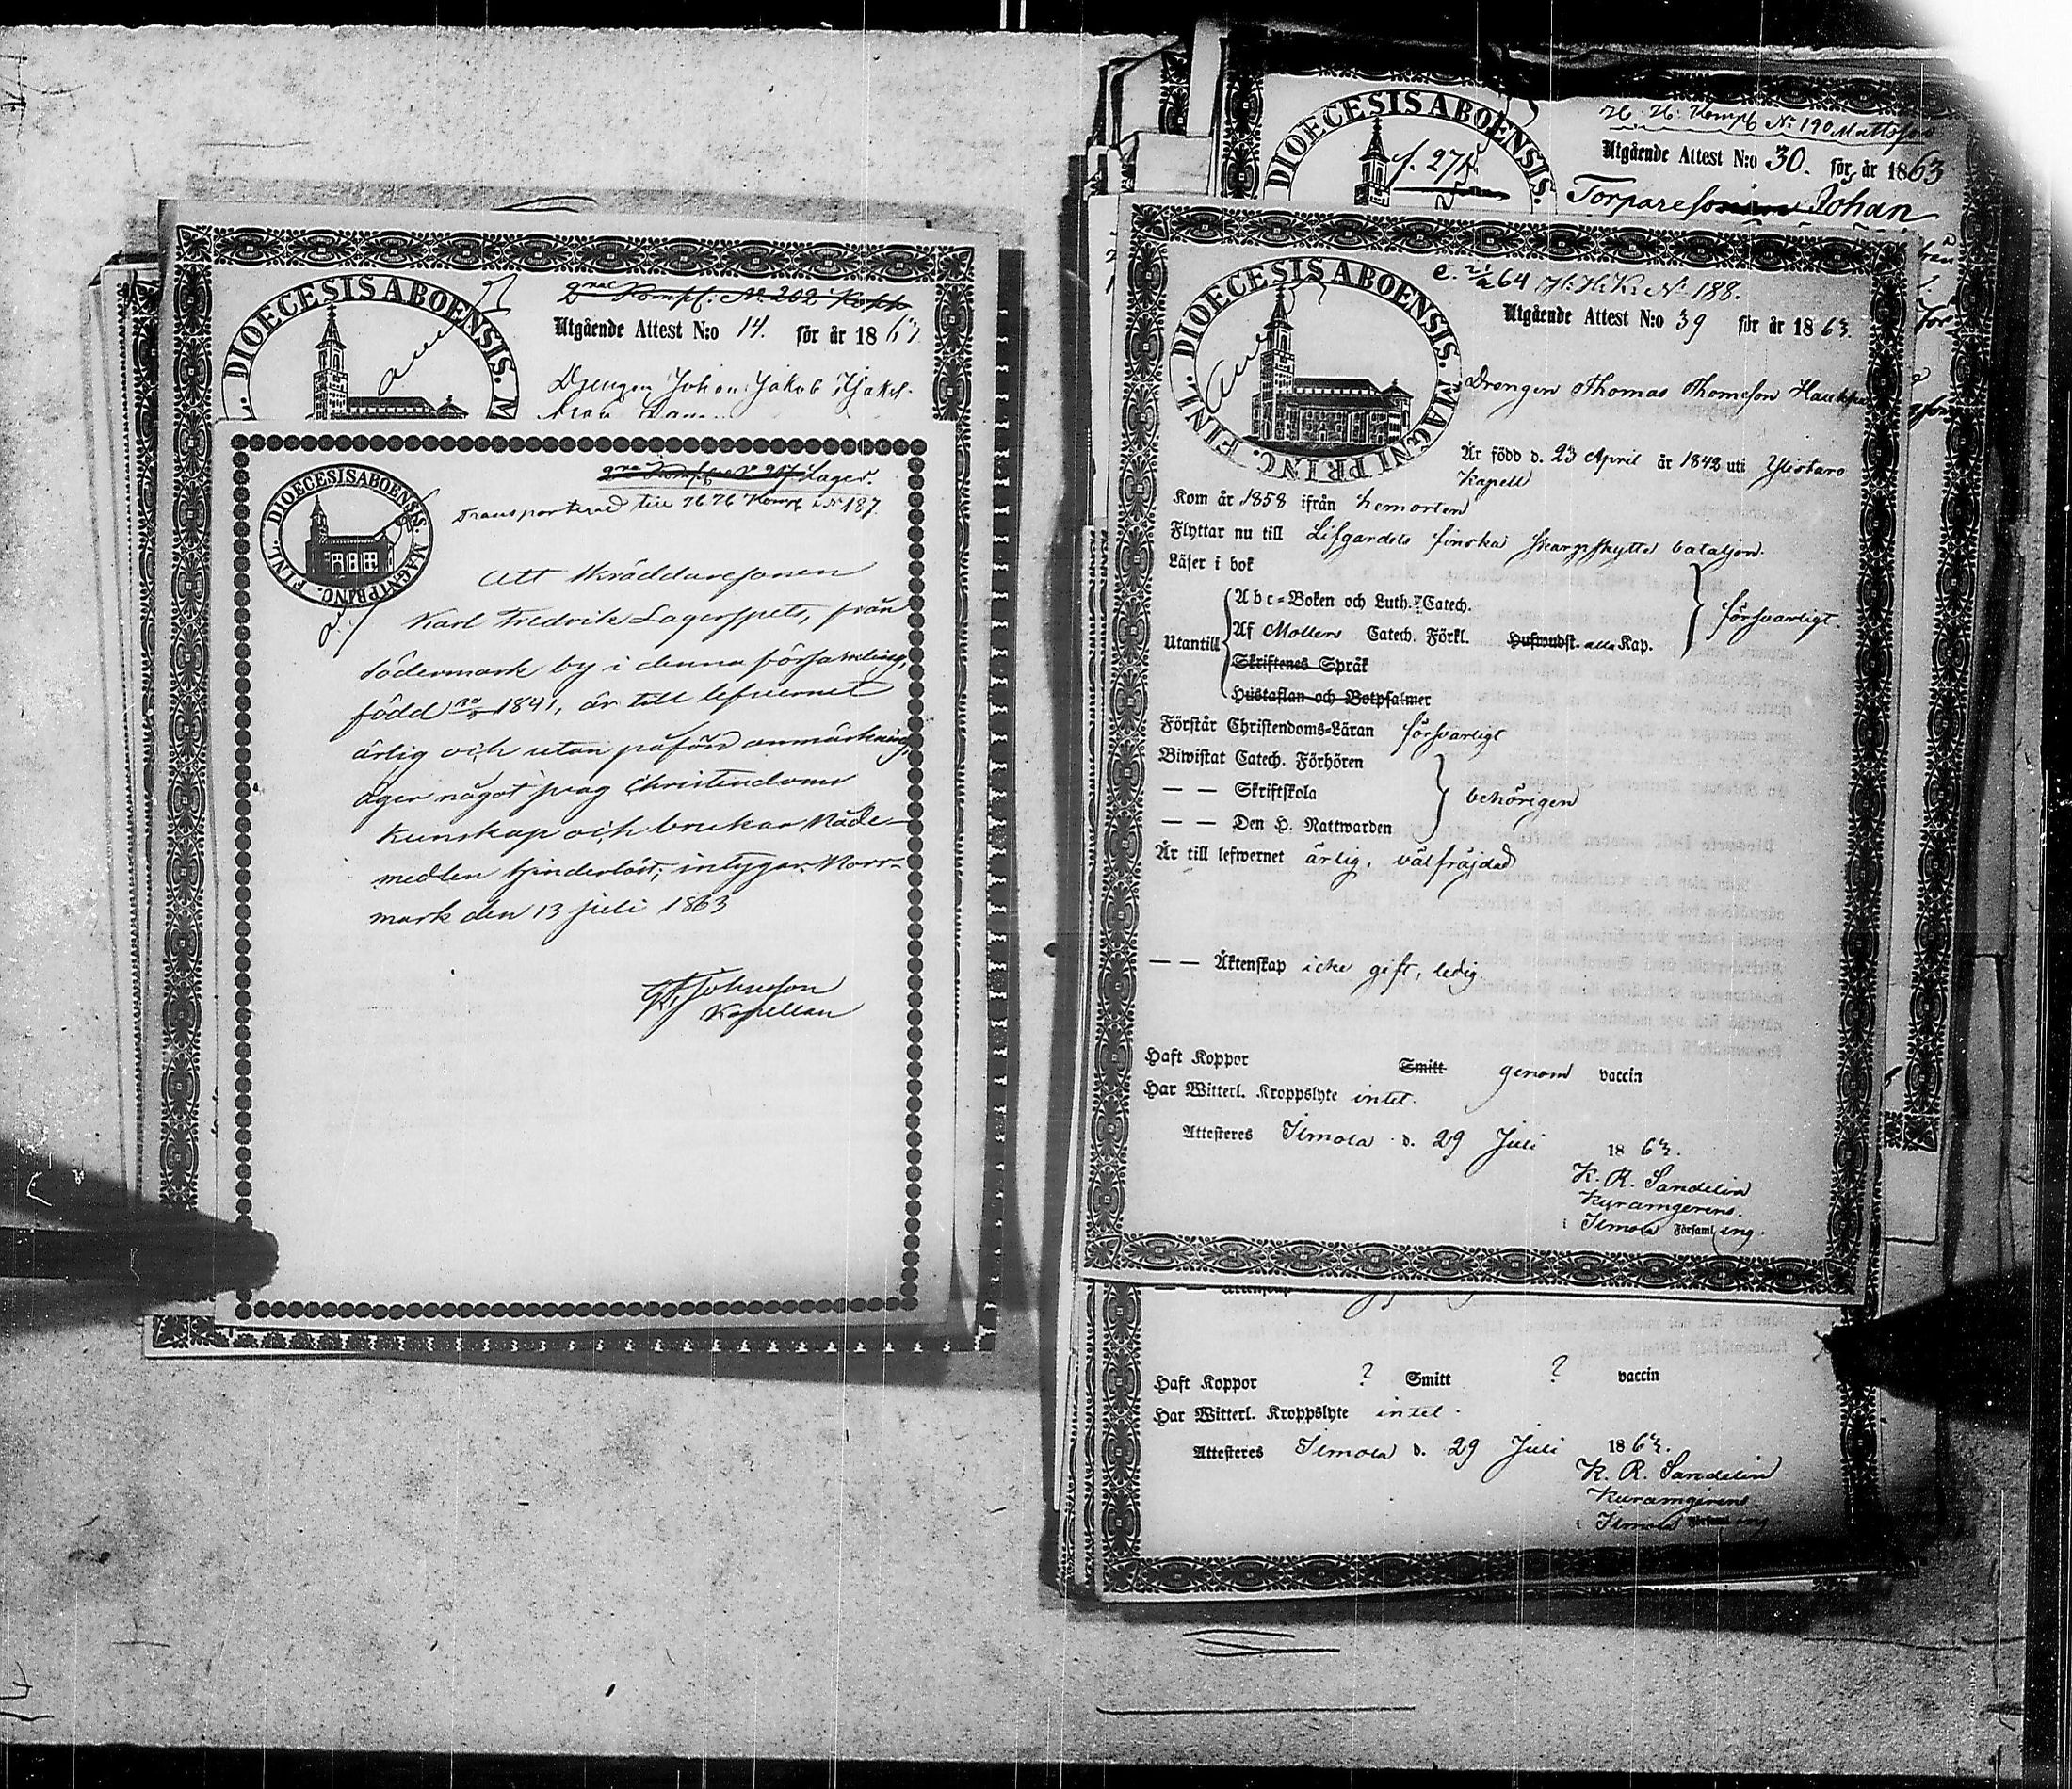 DIOECESIS ABOENSIS. M
FINL.
2nae Kompf: No. 202 Kopp
Utgående Attest N:o 14. för år 1863
Drengen Johan Jakob
DIOECESIS ABOENSIS. MAGNI PRINC. FINL.
Lager.
Transporterad till H H Komp No 187.
Att Skräddaresonen
Karl Fredrik Lagerspets, från
Södermark by i denna församling,
född 1841, är till lefvernet
ärlig och utan påförd anmärkning,
äger något svag Christendoms
kunskap och brukar Nåde-
medlen hinderlöst; intygar. Norr-
mark den 13 juli 1863
Johnsson
Kapellan
DIOECESIS ABOENSIS.
f. 27
H. H. Kompf No 190 Mattsson
Utgående Attest N:o 30. för år 1863
Torparesonen Johan
DIOECESIS ABOENSIS. MAGNI PRINC. FINL.
64 H. H. K. No 188.
Utgående Attest N:o 39 för år 1863.
Drengen Thomas Thomeson Haukka
Är född d. 23 April år 1842 uti Ylistaro
Kapell
Kom år 1858 ifrån hemorten
Flyttar nu till Lifgardets finska skarpskytte bataljon.
Läser i bok
Utantill
Abc-Boken och Luth. Catech.
Af Mollers Catech. Förkl. Hufwudst. alla Kap.
Skriftenes Språk
Hustaflan och Botpsalmer
försvarligt
Förstår Christendoms-Läran försvarligt
Biwistat Catech. Förhören
— — Skriftskola
— — Den H. Nattwarden
behörigen
Är till lefwernet ärlig, välfräjdad
— — Äktenskap icke gift, ledig.
Haft Koppor Smitt genom vaccin
Har Witterl. Kroppslyte intet.
Attesteres Ilmola d. 29 Juli 1863.
K. R. Sandelin
Kuramgerens.
i Ilmola Församling.
Haft Koppor ? Smitt ? vaccin
Har Witterl. Kroppslyte intet.
Attesteres Ilmola d. 29 Juli 1863.
K. R. Sandelin
Kuramgerens
i Ilmola Församling